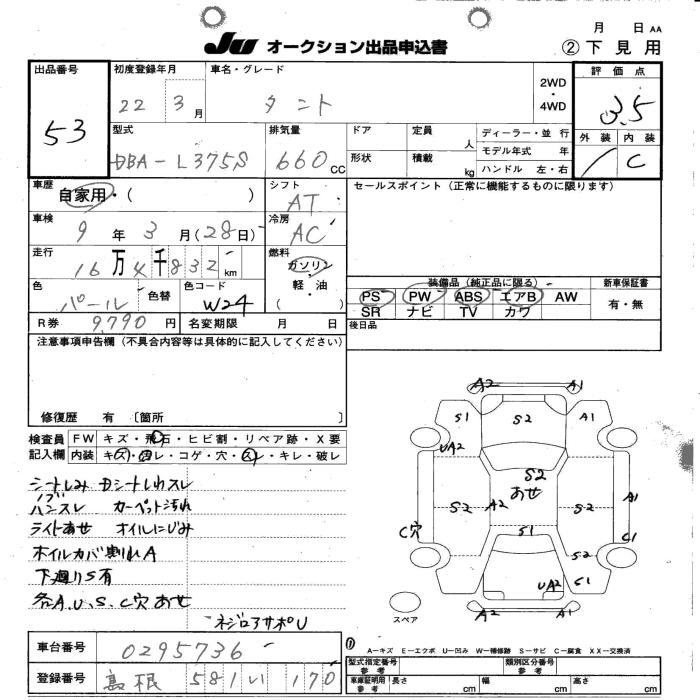 月 日 AA
JU オークション出品申込書 ②下見用
出品番号 初度登録年月 車名・グレード 2WD・4WD 評価点
53 22 3月 タント 3.5
外装 内装
C
型式 排気量 ドア 定員 人 ディーラー・並行
DBA-L375S 660cc 形状 積載 kg モデル年式 年
ハンドル 左・右
車歴 自家用・( ) シフト AT セールスポイント(正常に機能するものに限ります)
車検 9年 3月(28日) 冷房 AC
走行 16万4千832km 燃料 ガソリン・軽油( )
色 パール 色替 色コード W24
装備品(純正品に限る) 新車保証書
PS PW ABS エアB AW 有・無
SR ナビ TV カワ
R券 9,790円 名変期限 月 日 後日品
注意事項申告欄(不具合内容等は具体的に記入してください)
修復歴 有 〔箇所 〕
検査員記入欄 FW キズ・飛石・ヒビ割・リペア跡・X要
内装 キズ・汚レ・コゲ・穴・スレ・キレ・破レ
シートしみ Dシートしわスレ
ハンスレ カーペット汚れ
ライトあせ オイルにじみ
ホイルカバ割れA
下廻りS有
各A.U.S.C穴あせ
ネジロアサポU
A2 A1
S1 S2 A1
UA2
S2
あせ
S2 A2 S2 A1
C穴 S1 C1
S2
UA2 S1
A2 A1
スペア
車台番号 0295736
A-キズ E-エクボ U-凹み W-補修跡 S-サビ C-腐食 XX-交換済
登録番号 島根 581 い 170
型式指定番号 参考 類別区分番号 参考
車庫証明用 参考 長さ cm 幅 cm 高さ cm